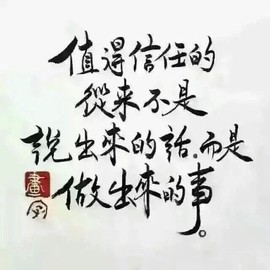 值得信任的
從来不是
說出來的話，而是
做出來的事。
畫字